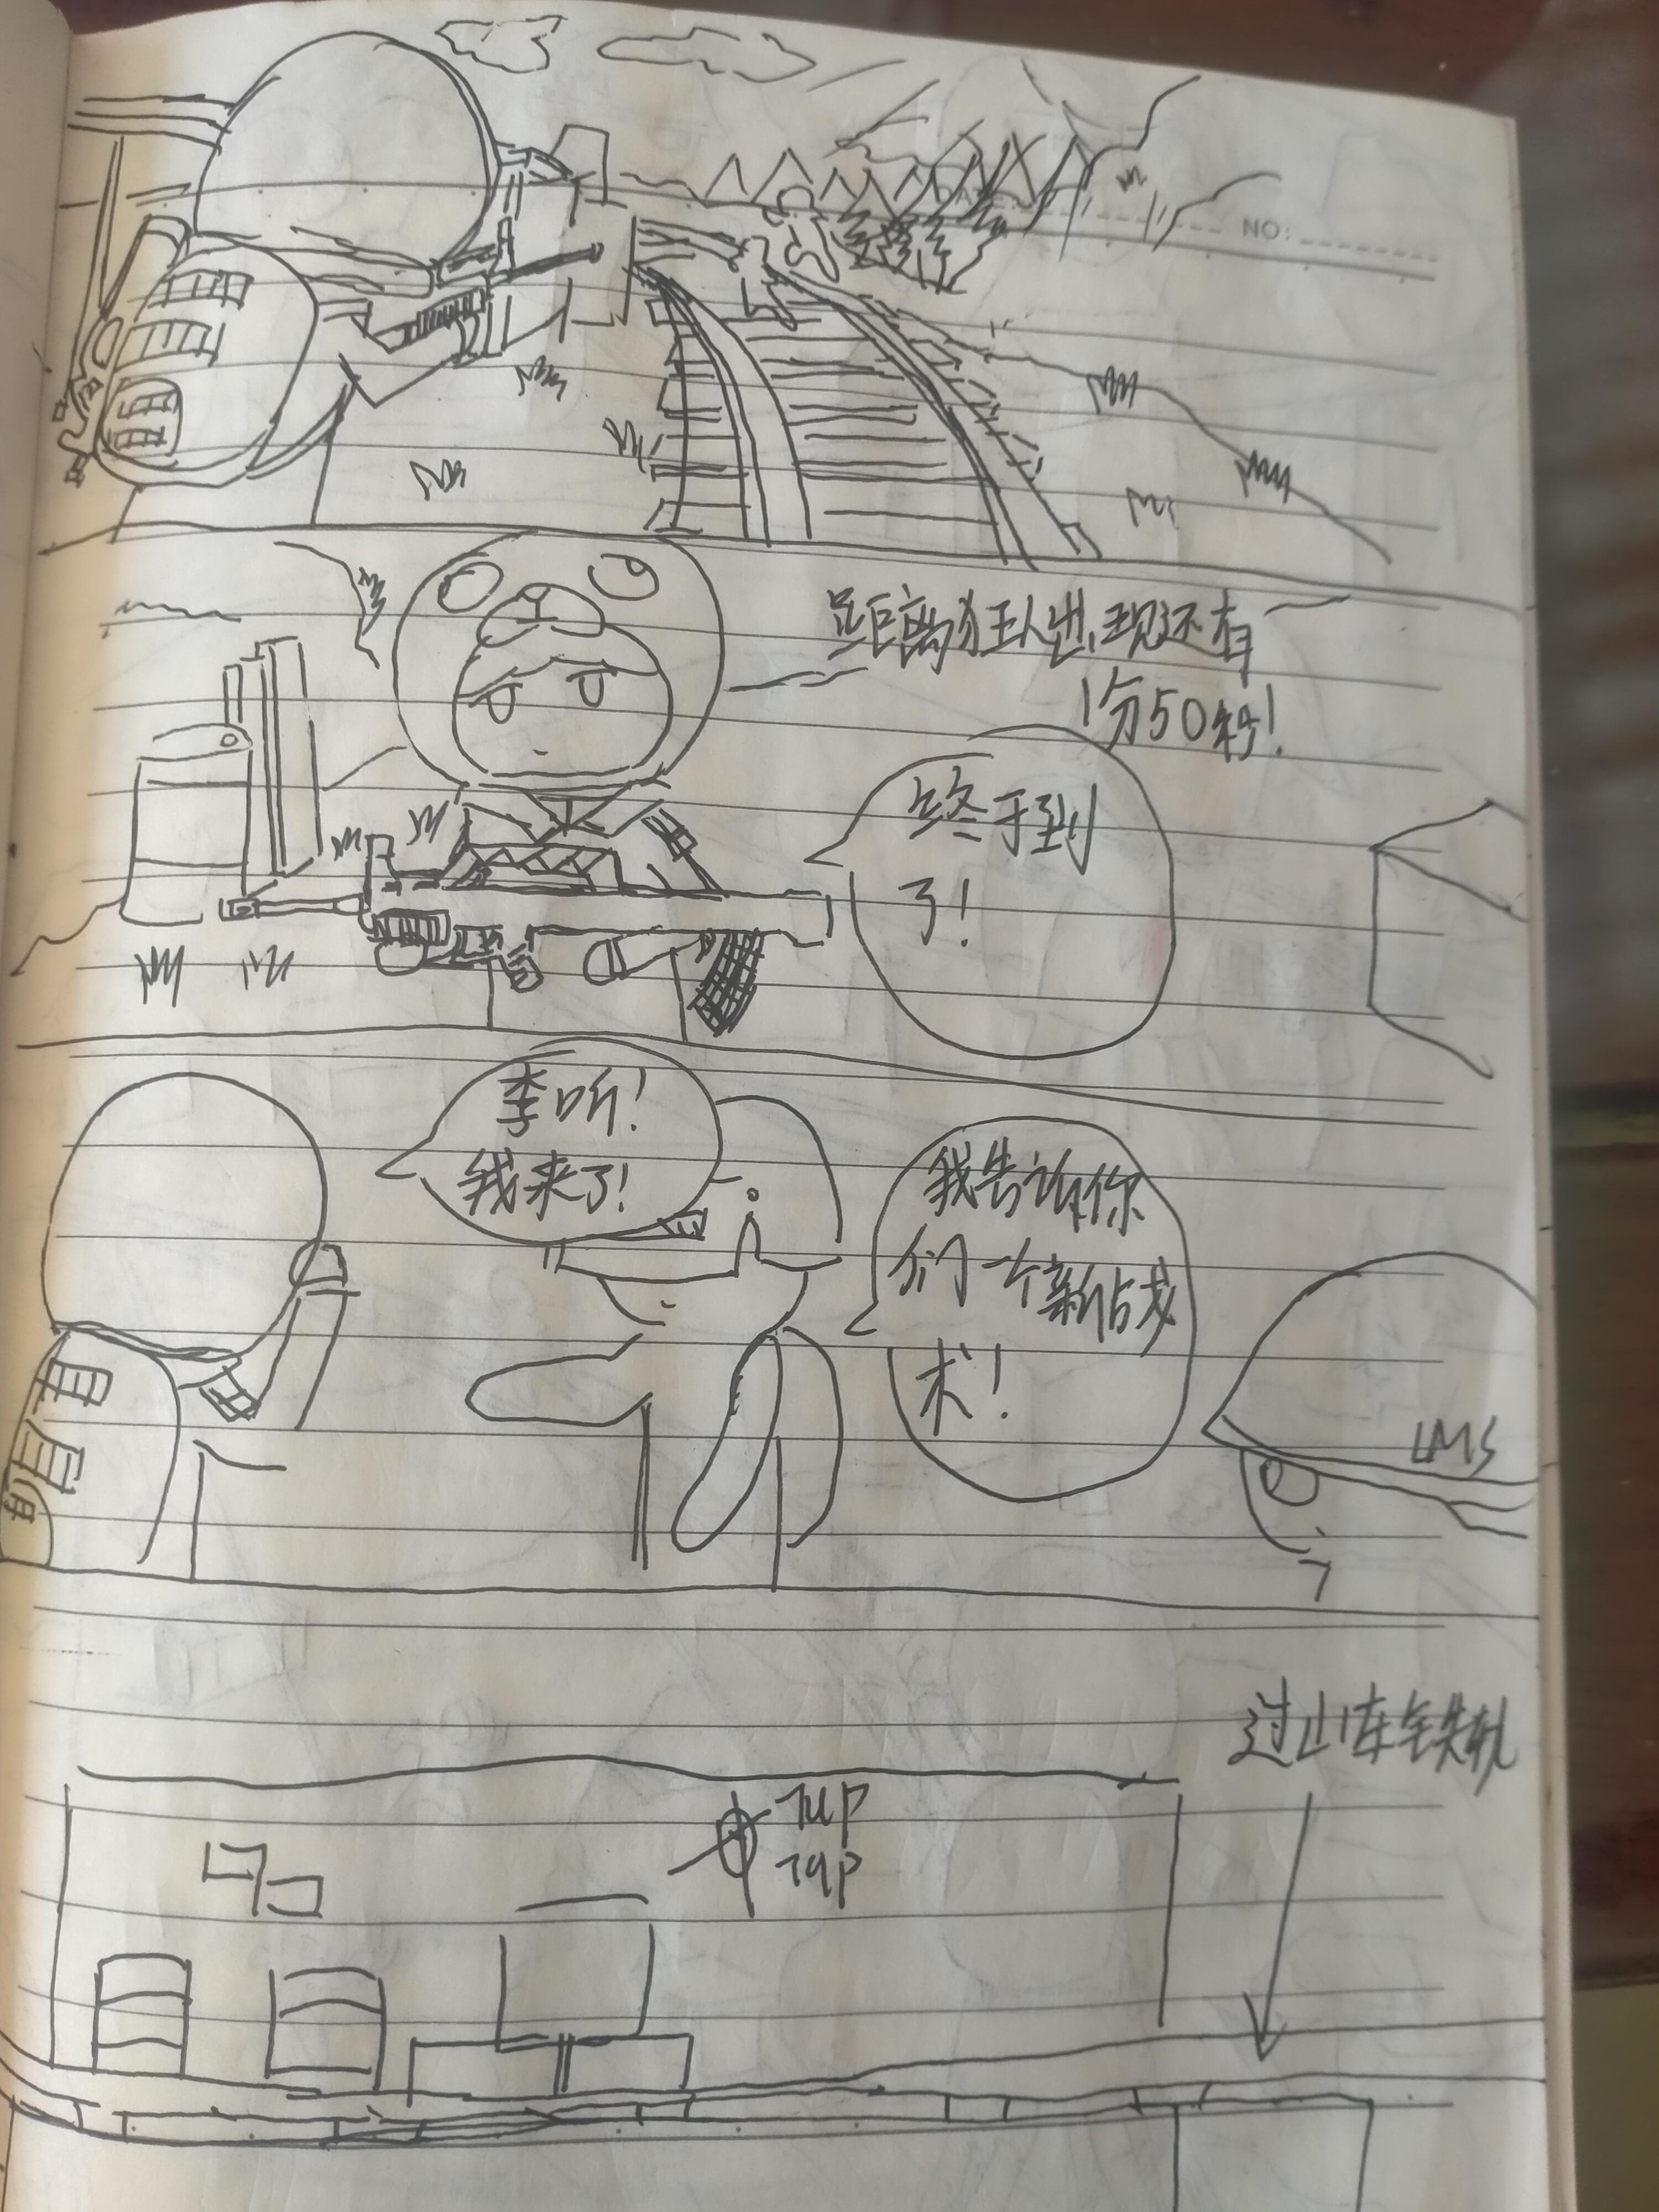 NO:
距离狂人出现还有
1分50秒!
终于到
了!
李听!
我来了!
我告诉你
们一个新占戈
术!
LMS
过山车铁轨